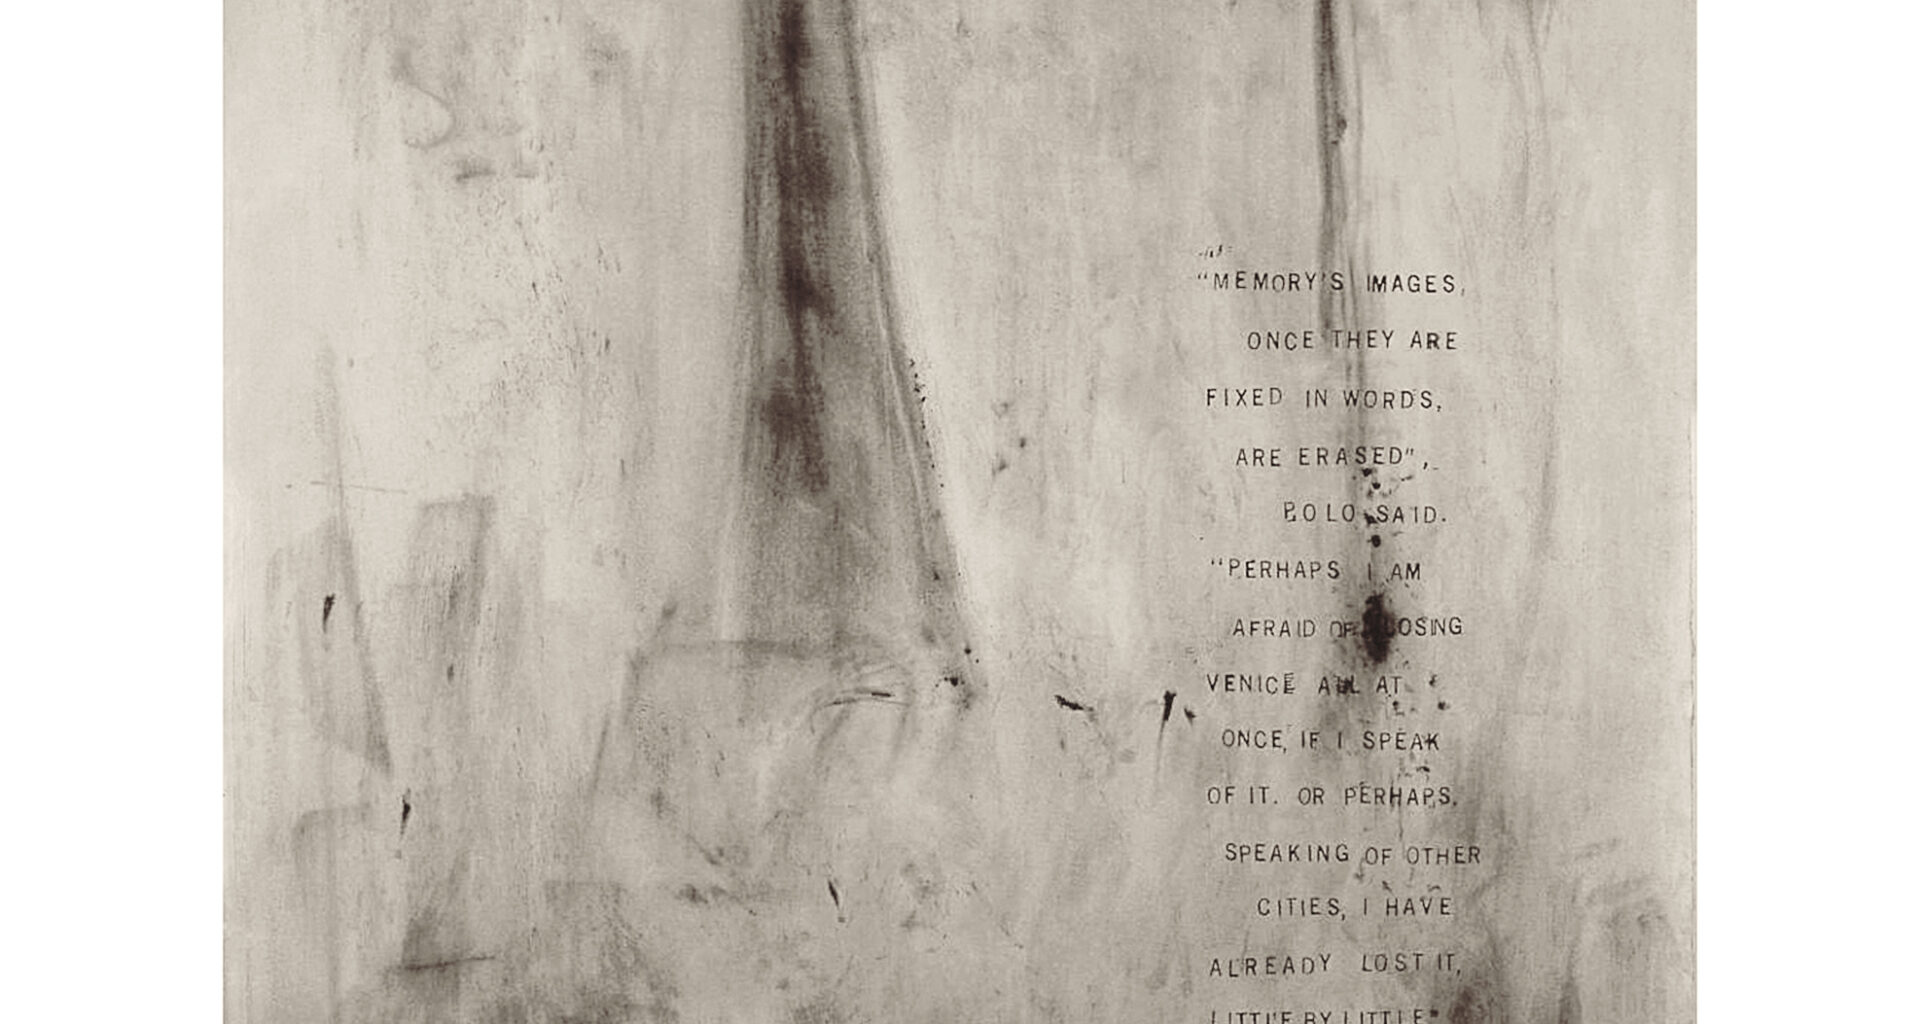 "MEMORY'S IMAGES,
ONCE THEY ARE
FIXED IN WORDS,
ARE ERASED",
POLO SAID.
"PERHAPS I AM
AFRAID OF LOSING
VENICE ALL AT
ONCE, IF I SPEAK
OF IT. OR PERHAPS,
SPEAKING OF OTHER
CITIES, I HAVE
ALREADY LOST IT,
LITTLE BY LITTLE"